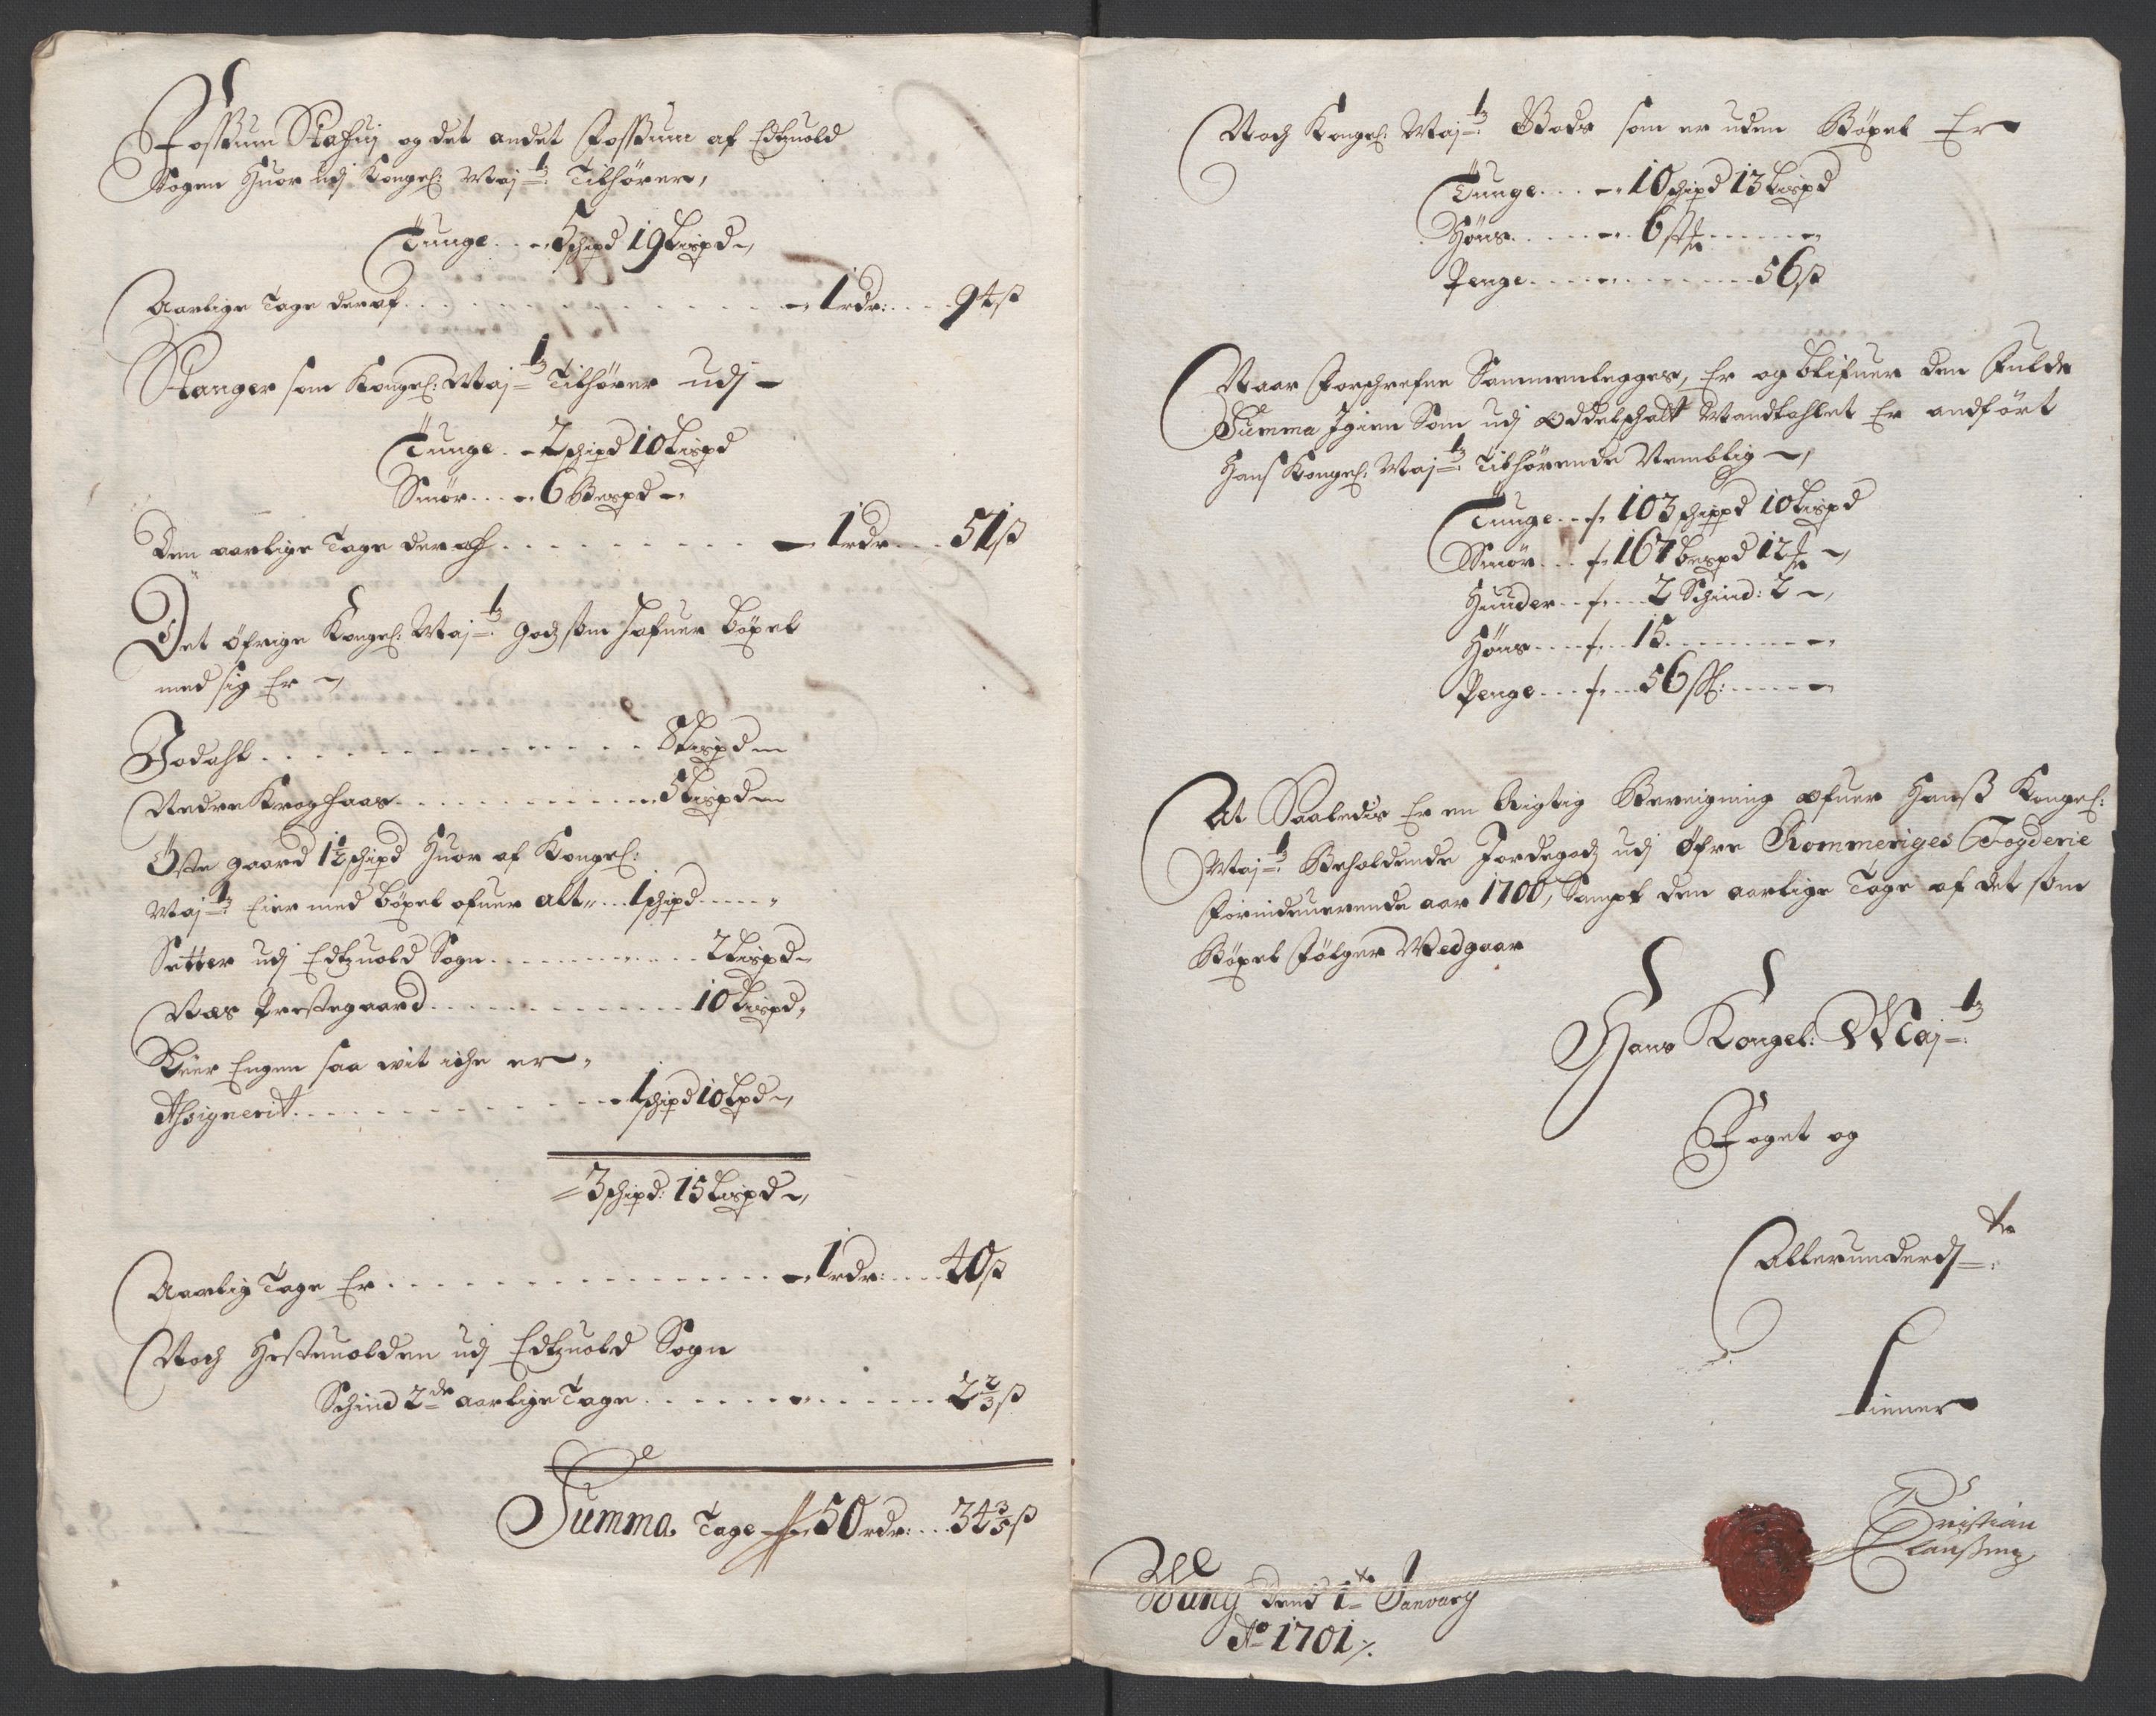 Fossum Stafuj og det andet Fossum af Edtzuold
Sogen Huor udj Kongel: Maj:tz Tilhører,
Tunge .. – 5 schipd 19 Lispd –,
Aarlige Tage deraf . . . . – 1 rdr: . . . 94 ß
Stanger som Kongel: Maj:tz Tilhører udj –
Tunge . – 2 schipd 10 Lispd
Smør . . . – 6 Bespd –
Den aarlige Tage deraff . . . . – 1 rdr . . . 51 ß
Det øfrige Kongel: Maj:tz godz som hafuer bøxel
med sig Er –,
Jodahl . . . . 8 Lispd –
Nedre Kroghaar . . . . 5 Lispd –
Øste gaard 1½ schipd Huor af Kongel:
Maj:tz Eier med bøxel ofuer alt „ . . . 1 schipd . . . „
Setter udj Edtzuold Sogn . . . . 2 Lispd –
Næs Prestegaard . . . . 10 Lispd „
Kier Engen saa vit iche er „
Assignerit . . . . – 1 schipd 10 Lpd –,
= 3 schipd: 15 Lispd –,
Aarlig Tage Er . . . . – 1 rdr: . . . 40 ß
Noch Hestnolden udj Edtzuold Sogn
Schind 2de aarlige Tage . . . . 2 2/3 ß
Summa Tage – 50 rdr: . . . 34 3/5 ß
Noch Kongel: Maj:tz Gods som er uden Bøxel Er
Tunge . . . – 10 schipd 13 Lispd
Høns . . . . – 6 st: . . . –
Penge . . . . 56 ß
Naar Forschrefne Sammenlegges, Er og blifuer den fulde
Summa Igien Som udj Oddelschatt Mandtahlet Er andført
Hans Kongel: Maj:tz Tilhørende Nemblig –,
Tunge . . . 103 schippd 10 Lispd
Smør . . . 167 bespd 12 –,
Huuder . . . 2 Schind: 2 –,
Høns . . . 15 . . . –
Penge . . . 56 ß: . . . –
At Saaledis Er en Rigtig Beregning ofuer Hanß Kongel:
Maj:tz Beholdende Jordegodz udj Øfre Rommeriges Fogderie
forindeuerende aar 1700, Sampt den aarlige Tage af det som
Bøxel følger Vedgaar
Hans Kongel: Maj:tz
Foget og
Allerunderd:te
tiener
Christian
Clausen
Wung dend 1te January
Ao 1701 /.